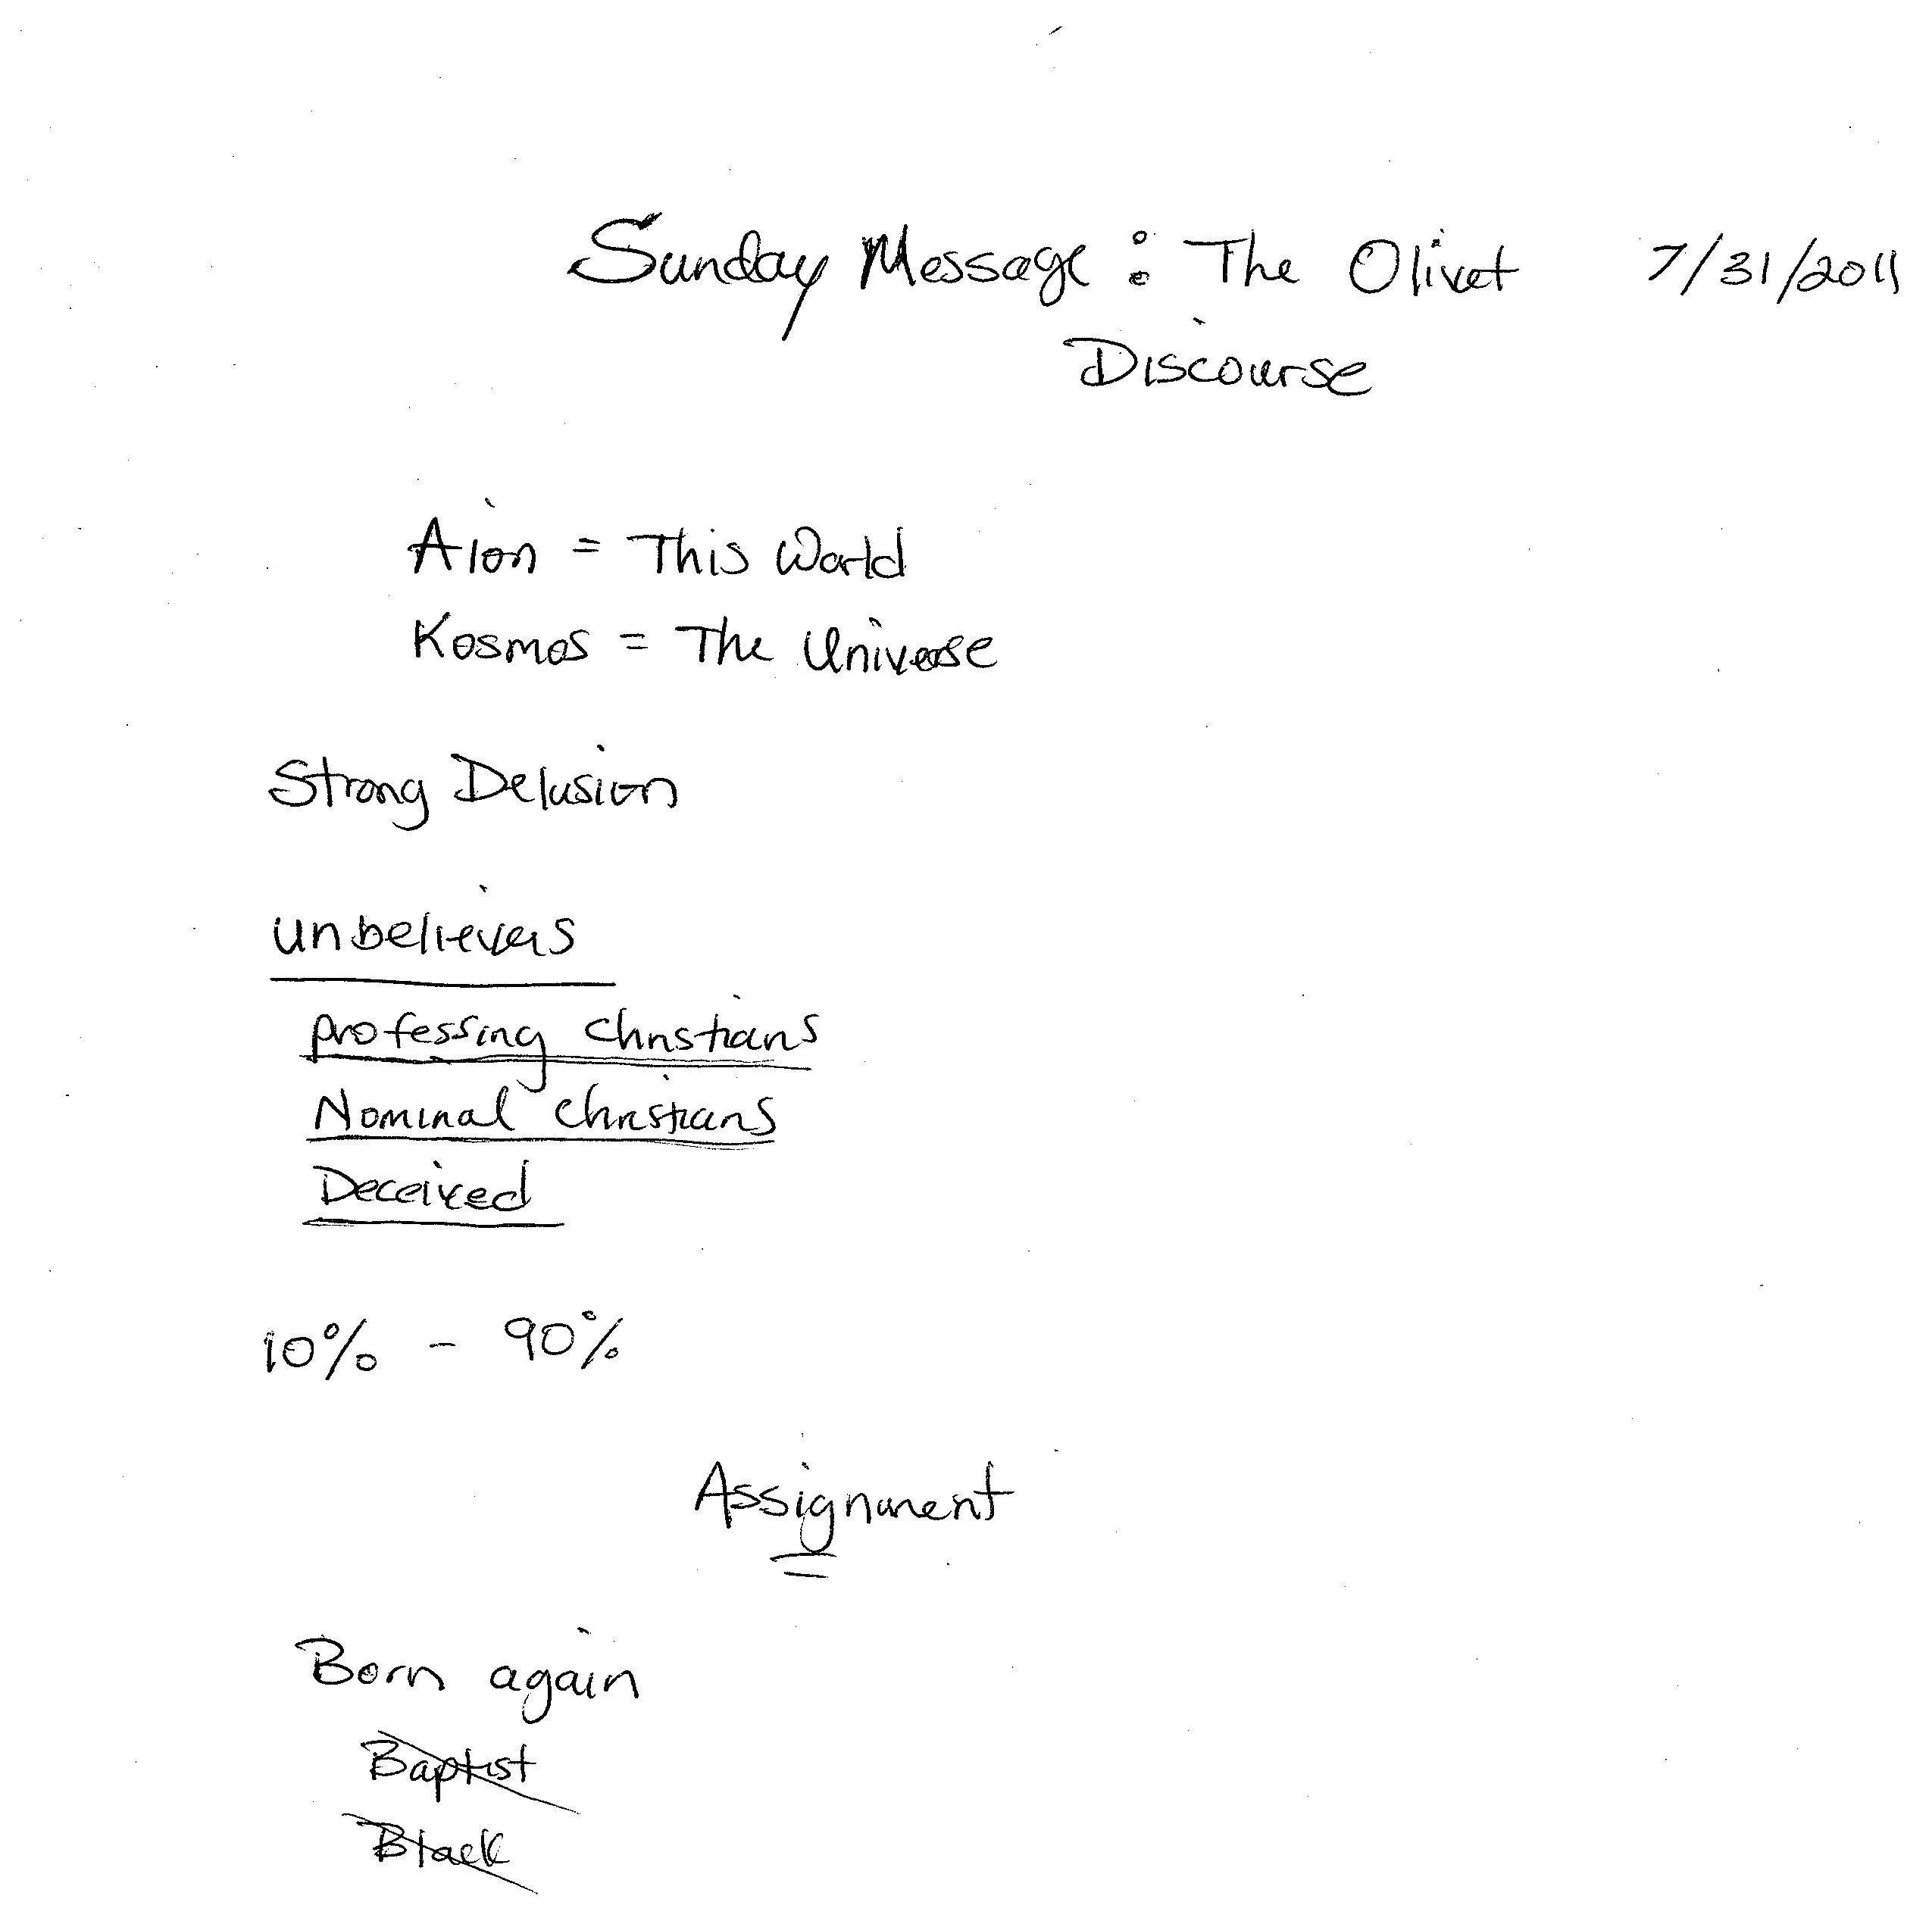 Sunday Message: The Olivet 7/31/2011
Discourse
Aion = This World
Kosmos = The Universe
Strong Delusion
unbelievers
professing Christians
Nominal Christians
Deceived
10% - 90%
Assignment
Born again
Baptist
Black